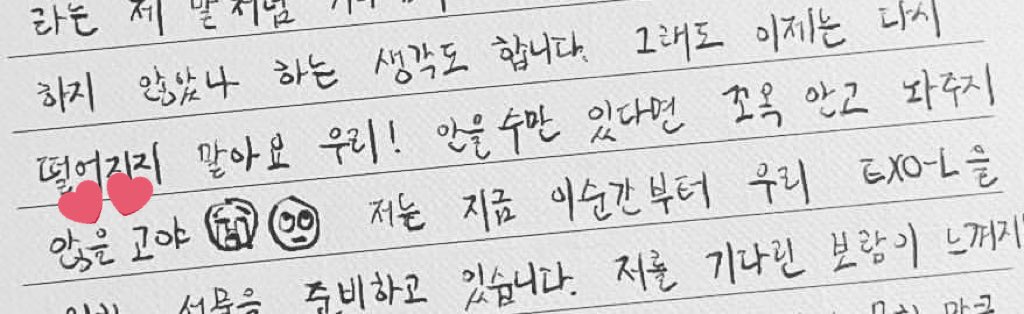 라는 제 말처럼
하지 않았나 하는 생각도 합니다. 그래도 이제는 다시
떨어지지 말아요 우리! 안을수만 있다면 꼬옥 안고 놔주지
않을 고야 저는 지금 이순간부터 우리 EXO-L을
선물을 준비하고 있습니다. 저를 기다린 보람이 느껴지